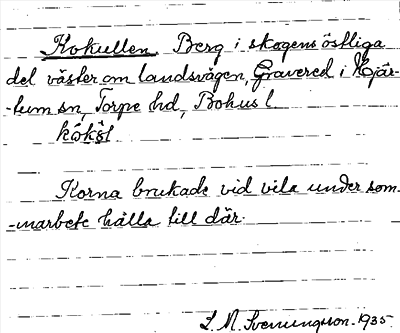 Kokullen, Berg i skogens östliga
del väster om landsvägen, Gravered i Hjär-
-tum sn, Torpe hd, Bohus l
Korna brukade vid vila under som-
-marbete hålla till där.
L. M. Svenungsson. 1935.